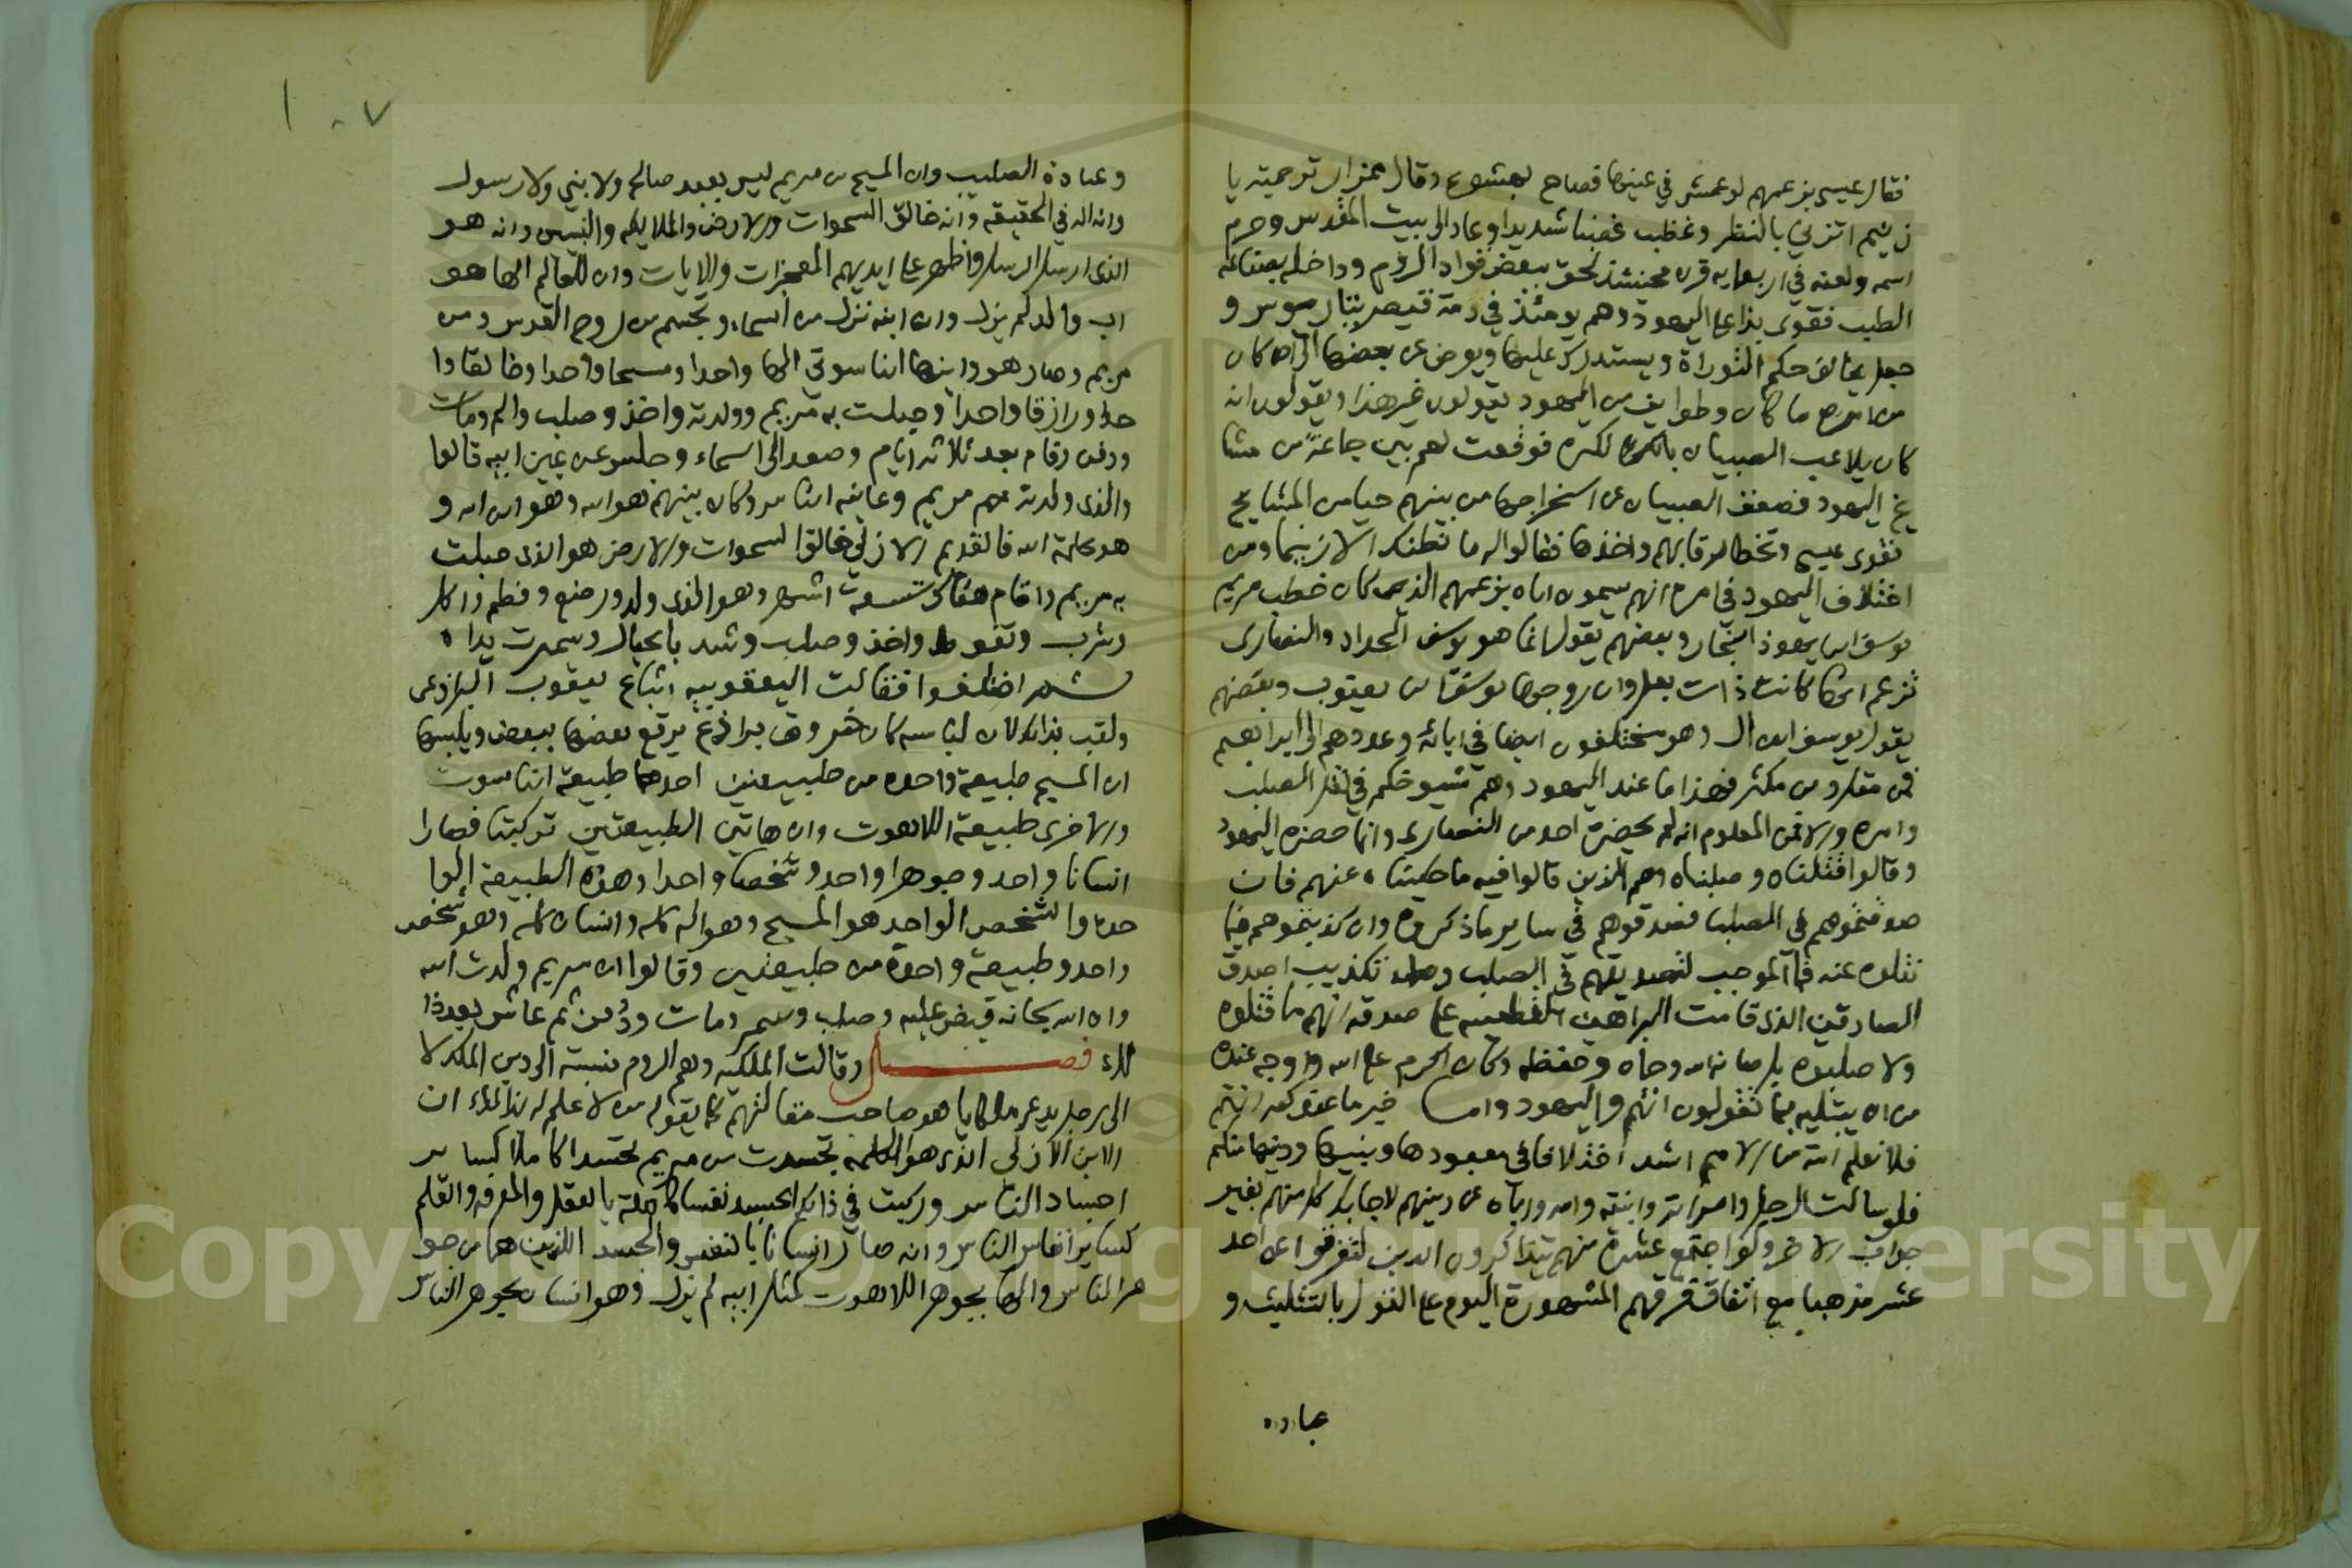 فقال عيسى بزعمهم لو عمش في عينها فصاح يهشوع وقال ممزار ترجمته يا
زنيم اتزني بالنظر وغضب غضبا شديدا وعاد الى بيت المقدس وحرم
اسمه ولعنه في اربعمايه قرن فحينئذ لحق ببعض قواد الروم وداخله بصناعة
الطب فقوى بذلك على اليهود وهم يومئذ في ذمة قيصر تباريوس و
جعل يخالف حكم التوراة ويستدرك عليها ويعرض عن بعضها الى ان كان
من امره ما كان وطوايف من اليهود يقولون غير هذا ويقولون انه
كان يلاعب الصبيان بالكره فوقعت لهم بين جماعة من مشا
يخ اليهود فضعف الصبيان عن استخراجها من بينهم حيا من المشايخ
فقوى عيسى وتخطا رقابهم واخذها فقالوا له ما نظنك الا زنيما ومن
اختلاف اليهود في امره انهم يسمون اباه بزعمهم الذي كان خطب مريم
يوسف بن يهوذا النجار وبعضهم يقول انما هو يوسف الحداد والنصارى
تزعم انها كانت ذات بعل وان زوجها يوسف بن يعقوب وبعضهم
يقول يوسف بن ال وهم يختلفون ايضا في ابائه وعددهم الى ابراهيم
فمن مقل ومن مكثر فهذا ما عند اليهود وهم شيوخكم في نقل الصلب
وامره والا فمن المعلوم انه لم يحضره احد من النصارى وانما حضره اليهود
وقالوا قتلناه وصلبناه وهم الذين قالوا فيه ما حكيناه عنهم فان
صدقتموهم في الصلب فصدقوهم في ساير ما ذكروه وان كذبتموهم فيما
نقلوه عنه فما الموجب لتصديقهم في الصلب وتكذيب اصدق
الصادقين الذي قامت البراهين القطعيه على صدقه انهم ما قتلوه
ولا صلبوه بل صانه الله وحماه وحفظه وكان اكرم على الله واوجه عنده
من ان يبتليه بما تقولون انتم واليهود واما خير ما عندكم انتم
فلا نعلم امة من الامم اشد اختلافا في معبودها ونبيها ودينها منكم
فلو سالت الرجل وامراته وابنته وامه واباه عن دينهم لاجابك كل منهم بغير
جواب الاخر ولو اجتمع عشرة منهم يتذاكرون الدين لتفرقوا عن احد
عشر مذهبا مع اتفاق فرقهم المشهورة اليوم على القول بالتثليث و
عباده
١٠٧
وعبادة الصليب وان المسيح بن مريم ليس بعبد صالح ولا بني ولا رسول
وانه اله في الحقيقه وانه خالق السموات والارض والملايكه والنبيين وانه هو
الذي ارسل الرسل واظهر على ايديهم المعجزات والايات وان للعالم الها هو
اب والد لم يزل وان ابنه نزل من السماء وتجسم من روح القدس ومن
مريم وصار هو وابنها الناسوتي الها واحدا ومسيحا واحدا وخالقا وا
حدا ورازقا واحدا وحبلت به مريم وولدته واخذ وصلب والم ومات
ودفن وقام بعد ثلاثه ايام وصعد الى السماء وجلس عن يمين ابيه قالوا
والذي ولدته مريم وعاينه الناس وكان بينهم هو الله وهو ابن الله و
هو كلمة الله فالقديم الازلي خالق السموات والارض هو الذي حبلت
به مريم واقام هناك تسعة اشهر وهو الذي ولد ورضع وفطم واكل
وشرب وتغوط واخذ وصلب وشد بالحبال وسمرت يداه
ثم اختلفوا فقالت اليعقوبيه اتباع يعقوب البراذعي
ولقب بذلك لان لباسه كان من خروق براذع يرقع بعضها ببعض ويلبسها
ان المسيح طبيعة واحده من طبيعتين احدهما طبيعة الناسوت
والاخرى طبيعة اللاهوت وان هاتين الطبيعتين تركبتا فصارا
انسانا واحد وجوهرا واحد وشخصا واحدا وهذه الطبيعة الوا
حده والشخص الواحد هو المسيح وهو اله كله وانسان كله وهو شخص
واحد وطبيعة واحدة من طبيعتين وقالوا ان مريم ولدت الله
وان الله سبحانه قبض عليه وصلب وسمر ومات ودفن ثم عاش بعد ذا
لك فصل وقالت الملكيه وهم الروم نسبة الى دين الملك لا
الى رجل يدعى ملكايا هو صاحب مقالتهم كما يقوله من لا علم له بذلك ان
الابن الازلي الذي هو الكلمة تجسدت من مريم تجسدا كاملا كساير
اجساد الناس وركبت في ذلك الجسد نفسا كاملة بالعقل والمعرفه والعلم
كساير انفاس الناس وانه صار انسانا بالنفس والجسد اللذين هما من جو
هر الناس والها بجوهر اللاهوت كمثل ابيه لم يزل وهو انسان بجوهر الناس
Copyright © King Saud University